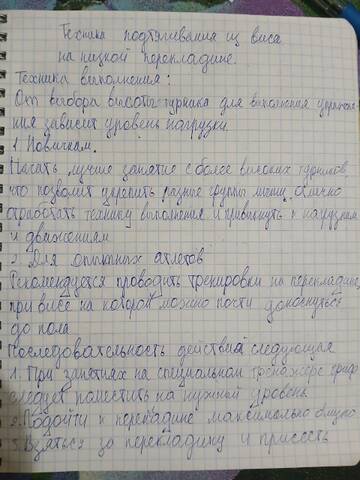 Техника подтягивания из виса
на низкой перекладине.
Техника выполнения:
От выбора высоты турника для выполнения упражне-
ния зависит уровень нагрузки.
1. Новичкам.
Начать лучше занятие с более высоких турников,
что позволит укрепить разные группы мышц,
отработать технику выполнения и привыкнуть к нагрузкам
и движениям
2. Для опытных атлетов
Рекомендуется проводить тренировки на перекладине,
при висе на которой можно почти докоснуться
до пола
Последовательность действий следующая
1. При занятиях на специальном тренажере гриф
следует поместить на нужный уровень
2. Подойти к перекладине максимально близко
3. Взяться за перекладину и присесть